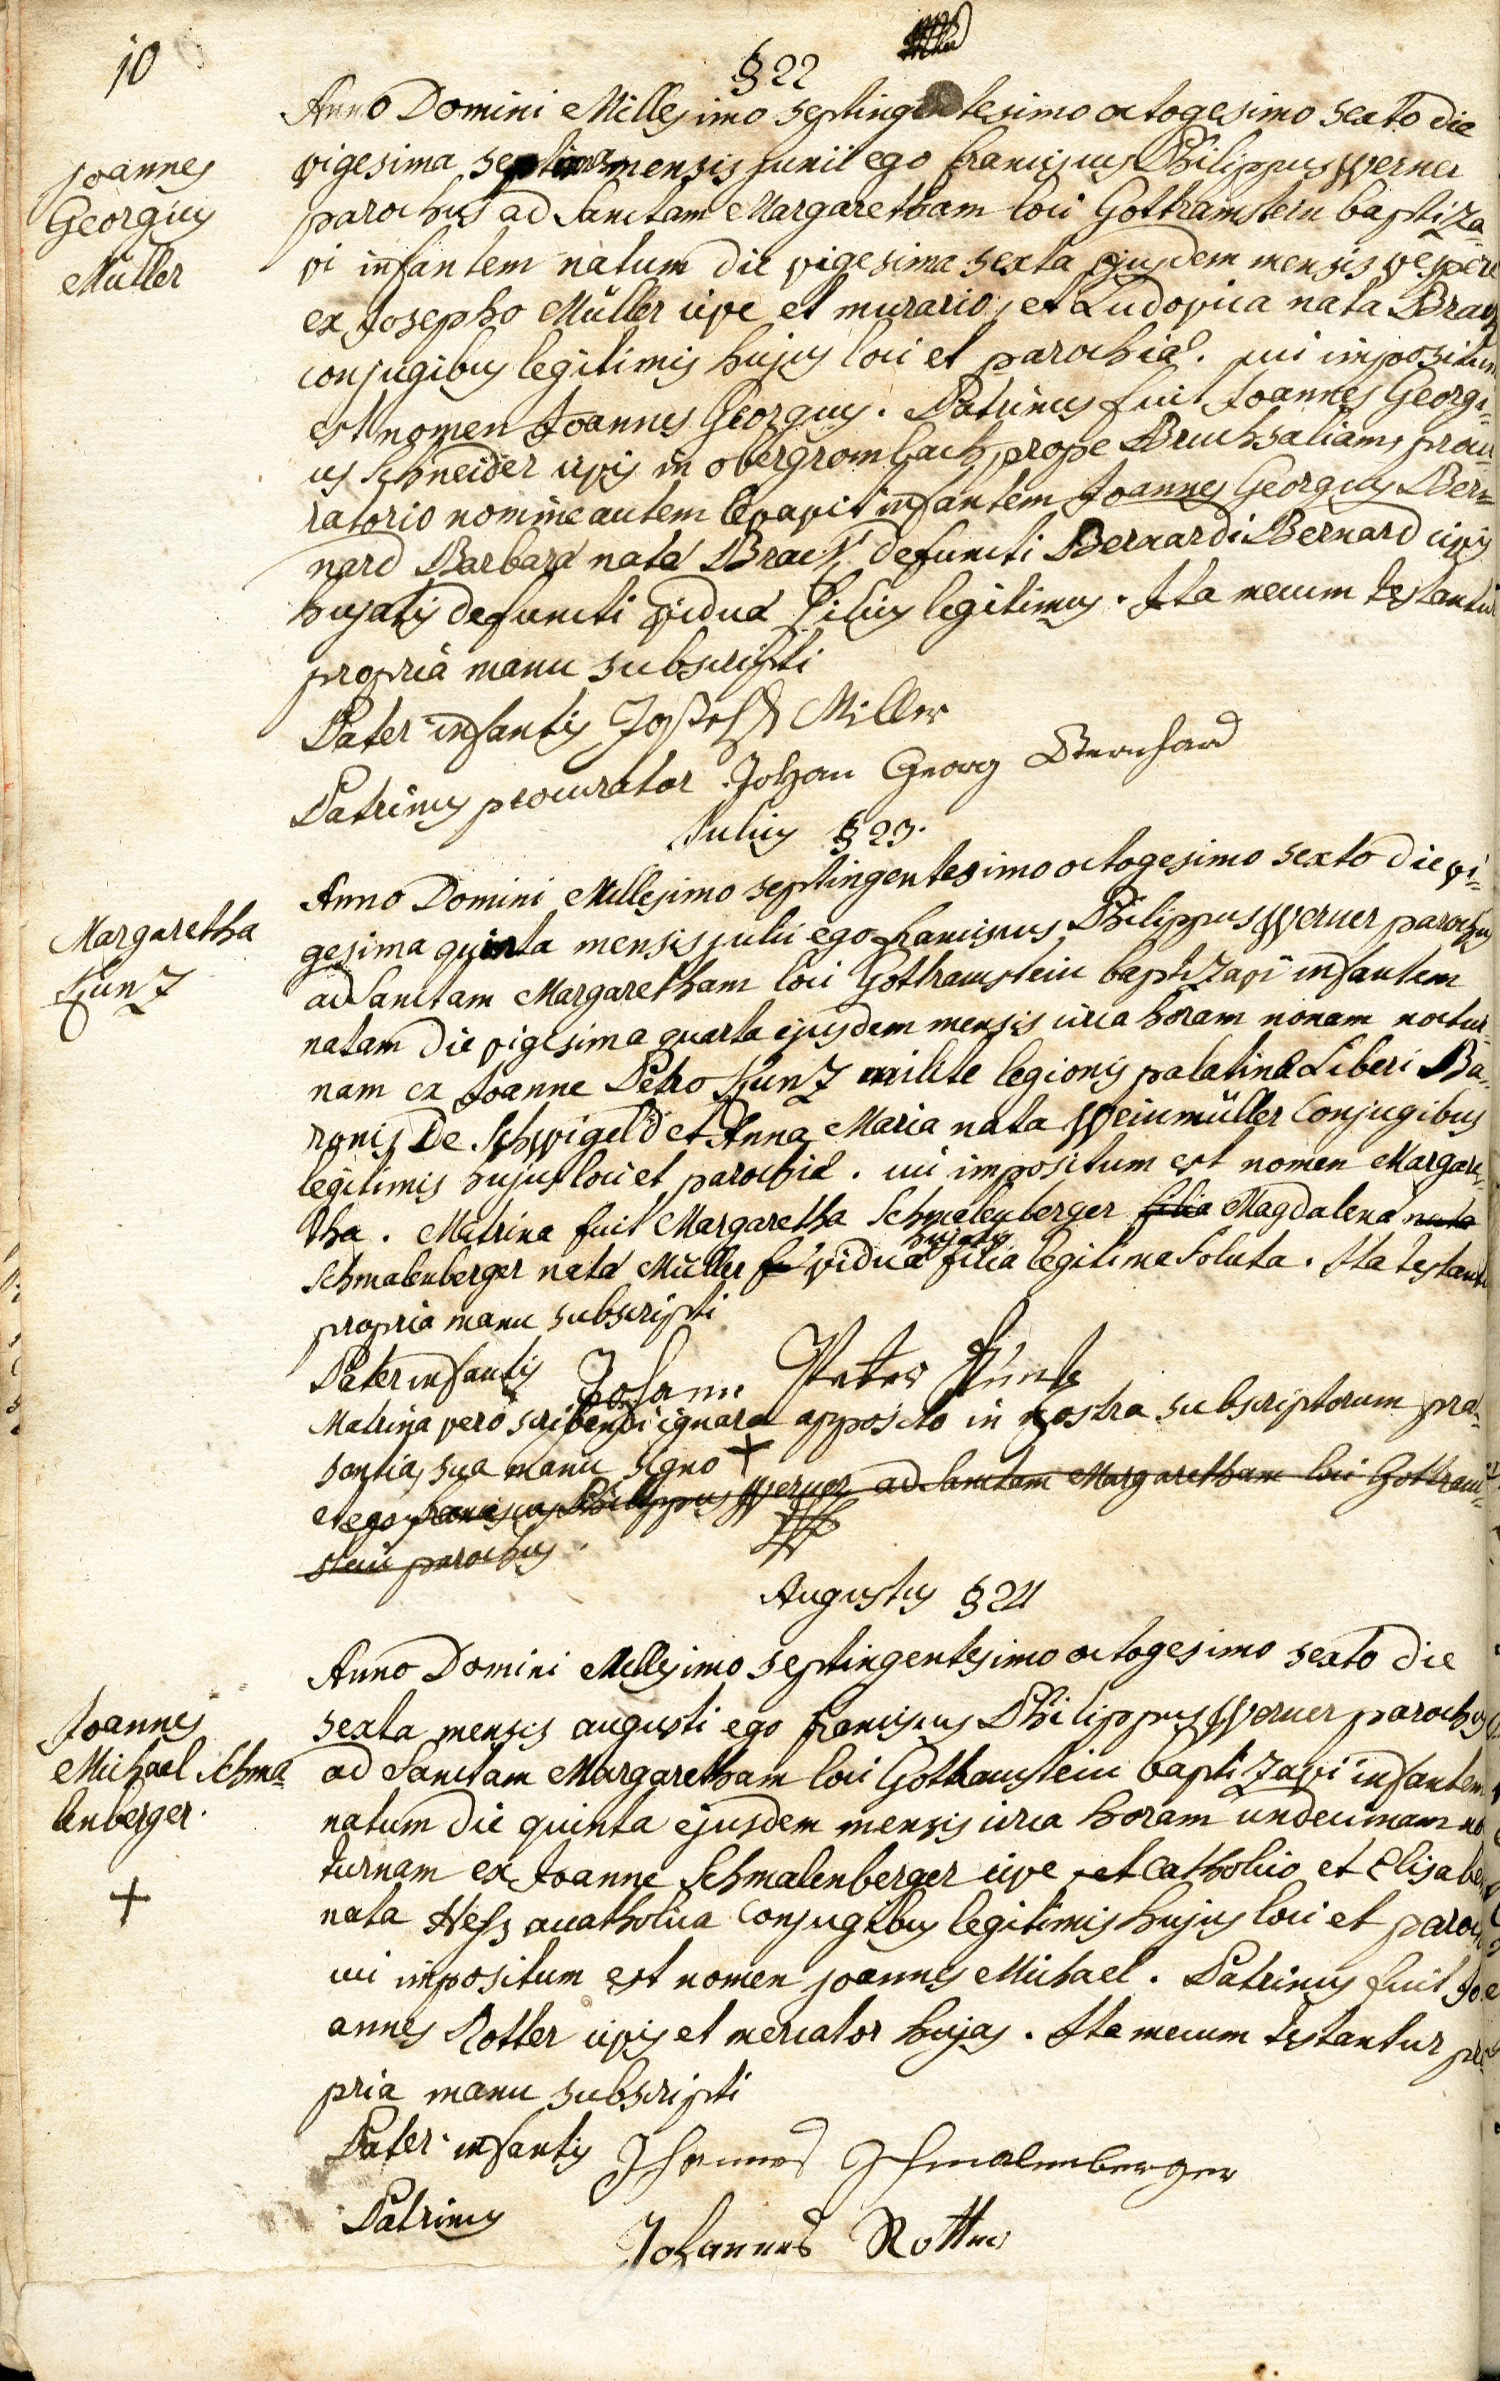 10
§ 22
Anno Domini Millesimo septingentesimo octogesimo sexto die
vigesima septima mensis junii ego franciscus Philippus Werner
parochus ad Sanctam Margaretham loci Gothramstein baptiza-
vi infantem natum die vigesima sexta ejusdem mensis vespere
ex Josepho Müller cive et murario, et Ludovica nata Brack
conjugibus legitimis hujus loci et parochiæ. cui impositum
est nomen Joannes Georgius. Patrinus fuit Joannes Georgi-
us Schneider civis in obergrombach prope Bruchsaliam, procu
ratorio nomine autem levavit infantem Joannes Georgius Ber-
nard Barbara nata Brack defuncti Bernardi Bernard civis
hujatis defuncti vidua filius legitimus. Ita mecum testantur
propria manu subscripti
Pater infantis Joseph Miller
Patrinus procurator Johan Georg Bernhard
Julius § 23.
Anno Domini Millesimo septingentesimo octogesimo sexto die vi-
gesima quinta mensis julii ego franciscus Philippus Werner parochus
ad Sanctam Margaretham loci Gothramstein baptizavi infantem
natam die vigesima quarta ejusdem mensis circa horam nonam noctur-
nam ex Joanne Petro Kunz milite legionis palatinæ Liberi Ba-
ronis De Schwigeld et Anna Maria nata Weinmüller Conjugibus
legitimis hujus loci et parochiæ. cui impositum est nomen Margare-
tha. Matrina fuit Margaretha Schmalenberger filia Magdalena nata
hujatis
Schmalenberger nata Müller f vidua filia legitima soluta. Ita testantur
propria manu subscripti
Pater infantis Johann Peter Kuntz
Matrina vero scribendi ignara apposito in nostra subscriptorum præ-
sentia, sua manu signo +
et ego franciscus Philippus Werner ad Sanctam Margaretham loci Gothram-
stein parochus.
Augustus § 24
Anno Domini Millesimo septingentesimo octogesimo sexto die
sexta mensis augusti ego franciscus Philippus Werner parochus
ad Sanctam Margaretham loci Gothramstein baptizavi infantem
natum die quinta ejusdem mensis circa horam undecimam noc
turnam ex Joanne Schmalenberger cive et Catholico et Elisabe
nata Hess acatholica Conjugibus legitimis hujus loci et paroch
cui impositum est nomen joannes Michael. Patrinus fuit Jo
annes Rotter civis et mercator hujas. Ita mecum testantur pro
pria manu subscripti
Pater infantis Johannes Schmalenberger
Patrinus Johannes Rotter
joannes
Georgius
Müller
Margaretha
Kunz
Joannes
Michael Schma
lenberger.
+